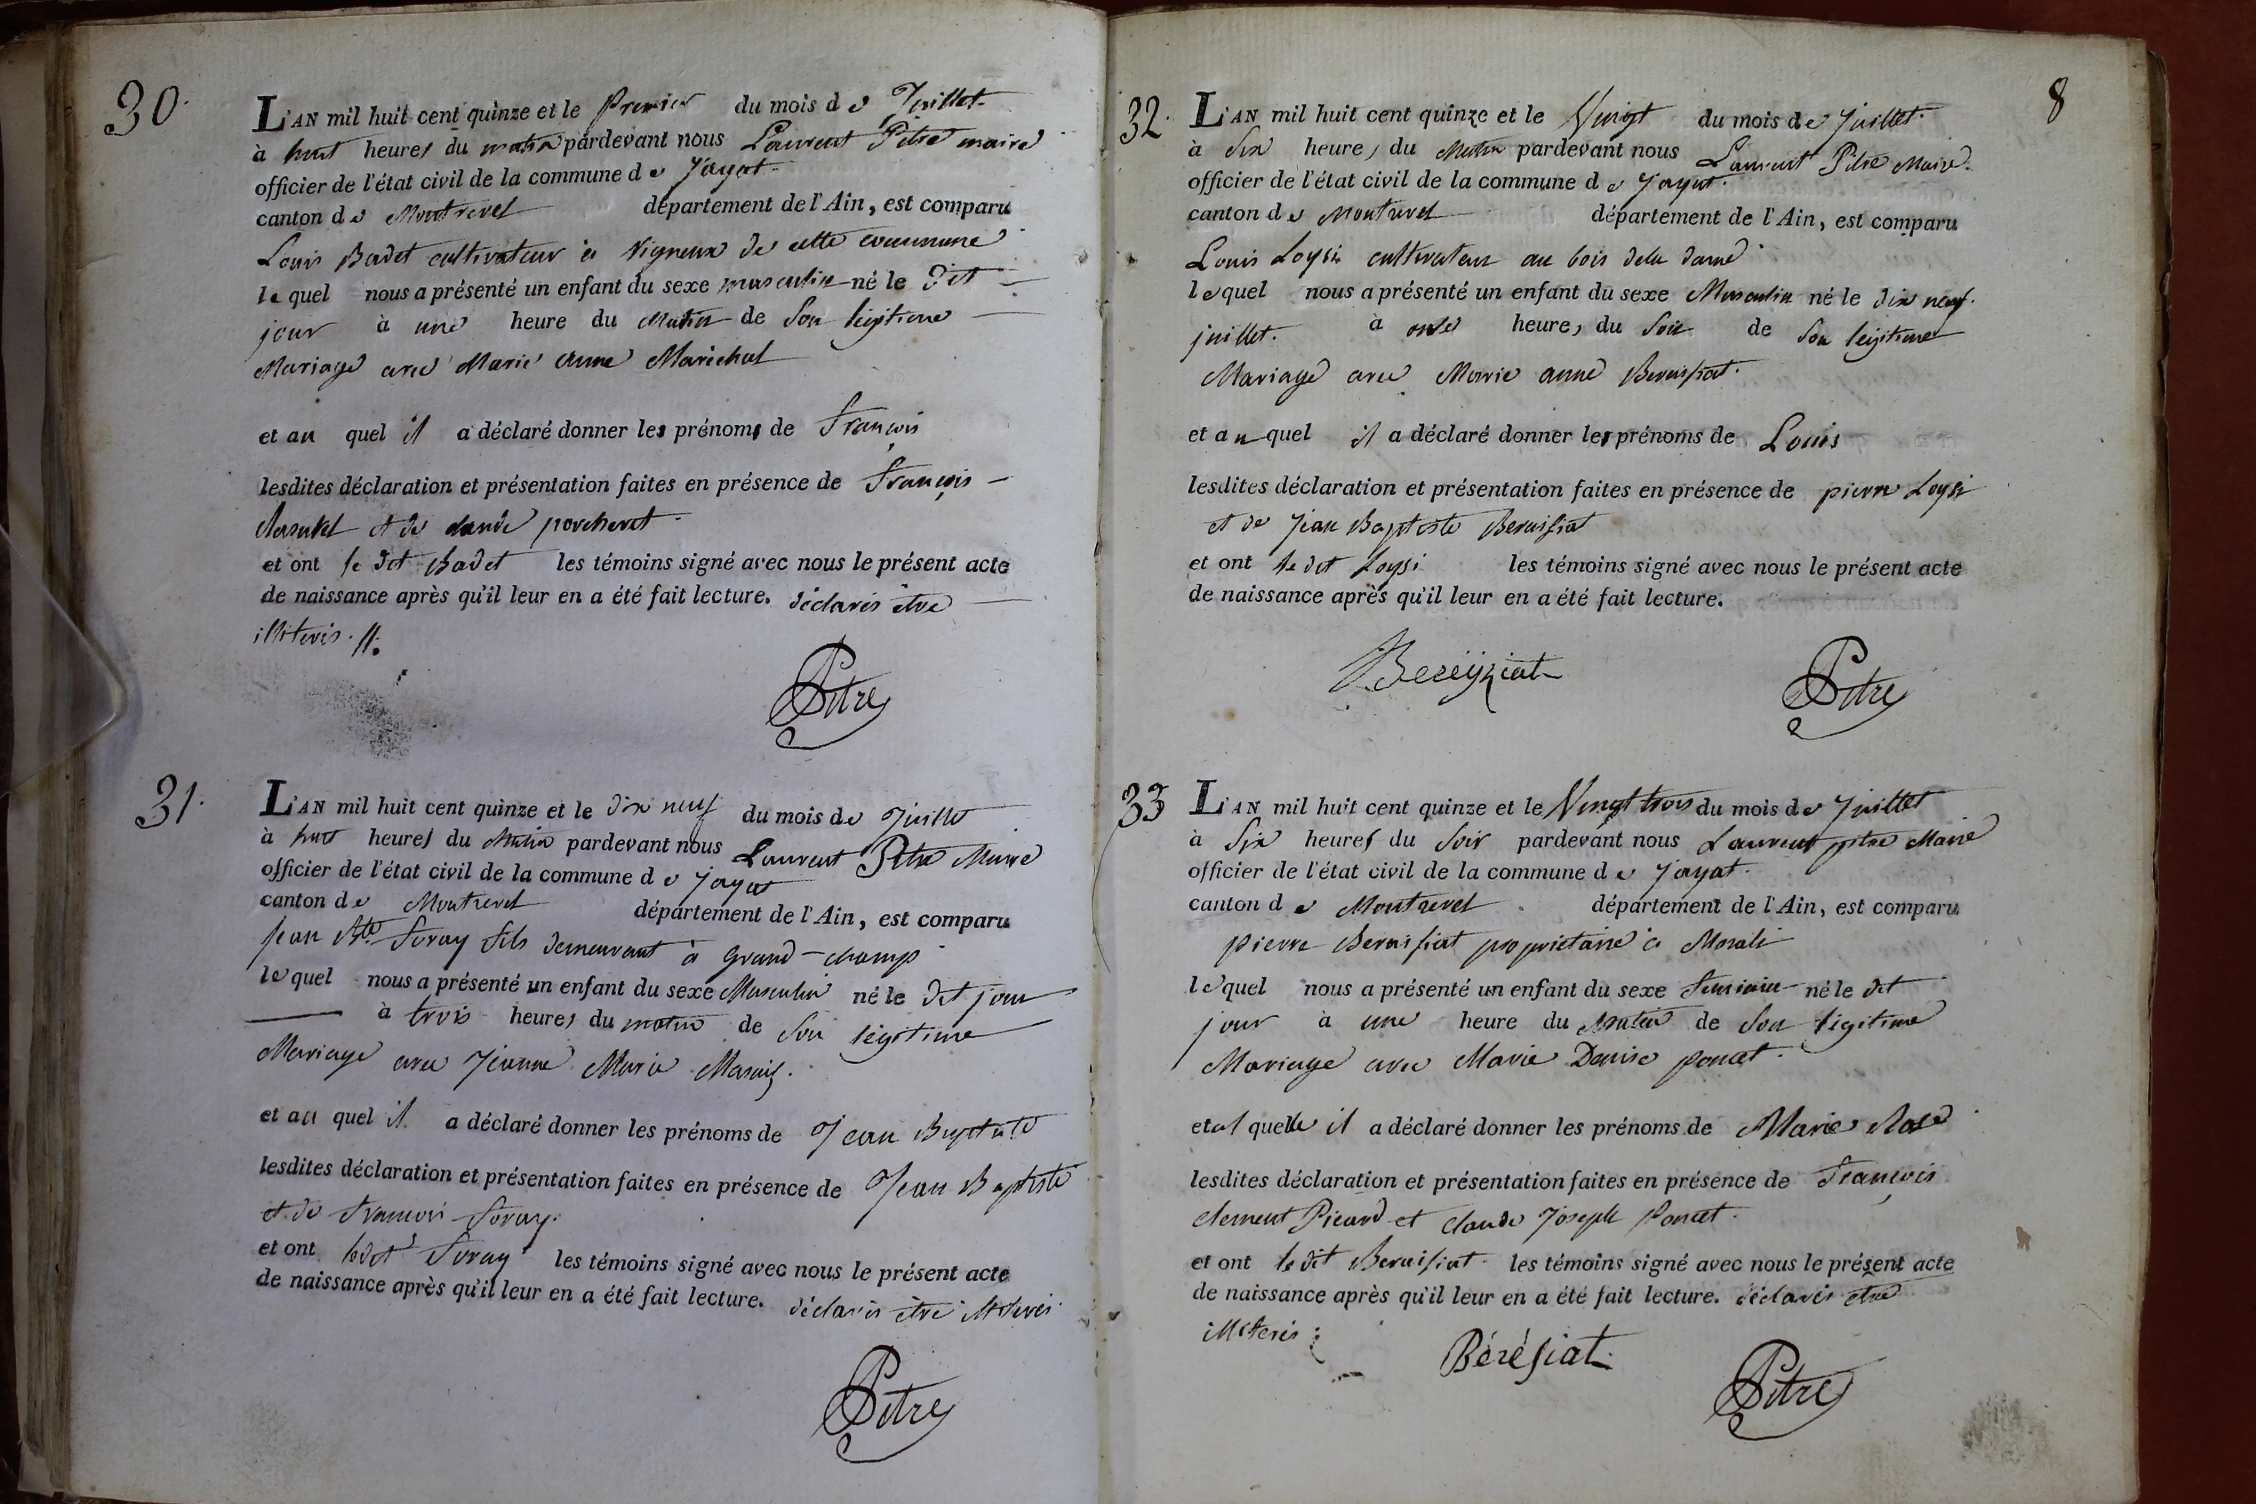 30.
L'AN mil huit cent quinze et le premier du mois de Juillet
à huit heures du matin pardevant nous Laurent Pitre maire
officier de l'état civil de la commune de Jayat
canton de Montrevel département de l'Ain, est comparu
Louis Badet cultivateur à Vigneux de cette commune
lequel nous a présenté un enfant du sexe masculin né le dit
jour à une heure du matin de son légitime
Mariage avec Marie anne Maréchal
et au quel il a déclaré donner les prénoms de François
lesdites déclaration et présentation faites en présence de François
et de claude porcheret
et ont le dit Badet les témoins signé avec nous le présent acte
de naissance après qu'il leur en a été fait lecture. déclarés être
illiterés
Pitre
31.
L'AN mil huit cent quinze et le dix neuf du mois de Juillet
à huit heures du matin pardevant nous Laurent Pitre Maire
officier de l'état civil de la commune de Jayat
canton de Montrevel département de l'Ain, est comparu
jean Bte Soray fils demeurant à grand-champ
lequel nous a présenté un enfant du sexe Masculin né le dit jour
à trois heures du matin de son légitime
Mariage avec Jeanne Marie
et au quel il a déclaré donner les prénoms de Jean Baptiste
lesdites déclaration et présentation faites en présence de Jean Baptiste
et de François Soray
et ont ledit Soray les témoins signé avec nous le présent acte
de naissance après qu'il leur en a été fait lecture. déclarés être illiterés
Pitre
8
32.
L'AN mil huit cent quinze et le Vingt du mois de Juillet
à six heures du Matin pardevant nous Laurent Pitre Maire.
officier de l'état civil de la commune de Jayat.
canton de Montrevel département de l'Ain, est comparu
Louis Loysi cultivateur au bois dela dame
lequel nous a présenté un enfant du sexe Masculin né le dix neuf
juillet. à onze heures du soir de son légitime
Mariage avec Marie anne Beraisiat
et au quel il a déclaré donner les prénoms de Louis
lesdites déclaration et présentation faites en présence de pierre Loysi
et de Jean Baptiste Beraisiat
et ont le dit Loysi les témoins signé avec nous le présent acte
de naissance après qu'il leur en a été fait lecture.
Beréyziat
Pitre
33
L'AN mil huit cent quinze et le Vingt trois du mois de Juillet
à six heures du soir pardevant nous Laurent pitre Maire
officier de l'état civil de la commune de Jayat
canton de Montrevel département de l'Ain, est comparu
pierre Beraisiat proprietaire à
lequel nous a présenté un enfant du sexe feminin né le dit
jour à une heure du matin de son légitime
Mariage avec Marie Denise poncet
et al quelle il a déclaré donner les prénoms de Marie Rose
lesdites déclaration et présentation faites en présence de François
clement Picard et claude Joseph Poncet
et ont le dit Beraisiat les témoins signé avec nous le présent acte
de naissance après qu'il leur en a été fait lecture. déclarés être
illiterés
Bérésiat
Pitre